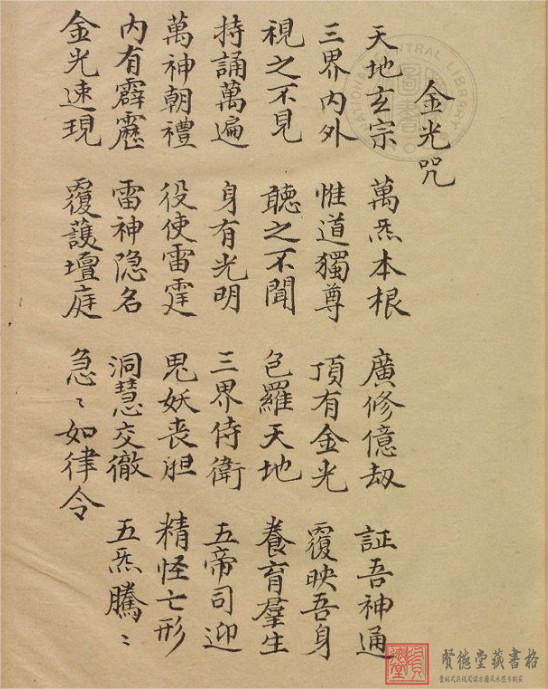 金光咒
天地玄宗 萬炁本根 廣修億劫 証吾神通
三界內外 惟道獨尊 頂有金光 覆映吾身
視之不見 聽之不聞 包羅天地 養育羣生
持誦萬遍 身有光明 三界侍衛 五帝司迎
萬神朝禮 役使雷霆 鬼妖丧胆 精怪亡形
內有霹靂 雷神隐名 洞慧交徹 五炁騰〻
金光速現 覆護壇庭 急〻如律令
NATIONAL CENTRAL LIBRARY
賢德堂菽書格